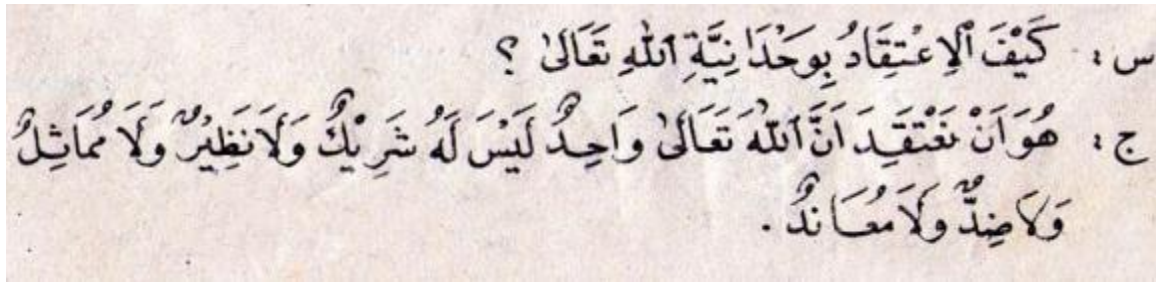 س : كَيْفَ ٱلِاعْتِقَادُ بِوَحْدَانِيَّةِ ٱللّٰهِ تَعَالىٰ ؟
ج : هُوَ اَنْ نَعْتَقِدَ اَنَّ ٱللّٰهَ تَعَالىٰ وَاحِدٌ لَيْسَ لَهُ شَرِيْكٌ وَلَا نَظِيْرٌ وَلَا مُمَاثِلٌ
وَلَا ضِدٌّ وَلَا مُعَانِدٌ .